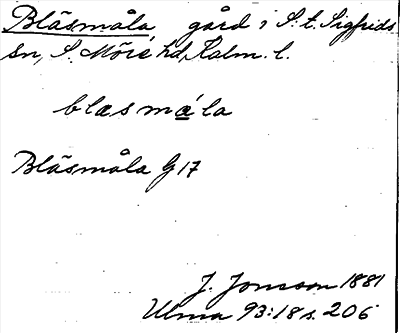 Bläsmåla, gård i S:t. Sigfrids
sn, S. Möre hd, Kalm. l.
blæsmåla
Bläsmåla G 17
J. Jonsson 1881
Ulma 93:18 s. 206